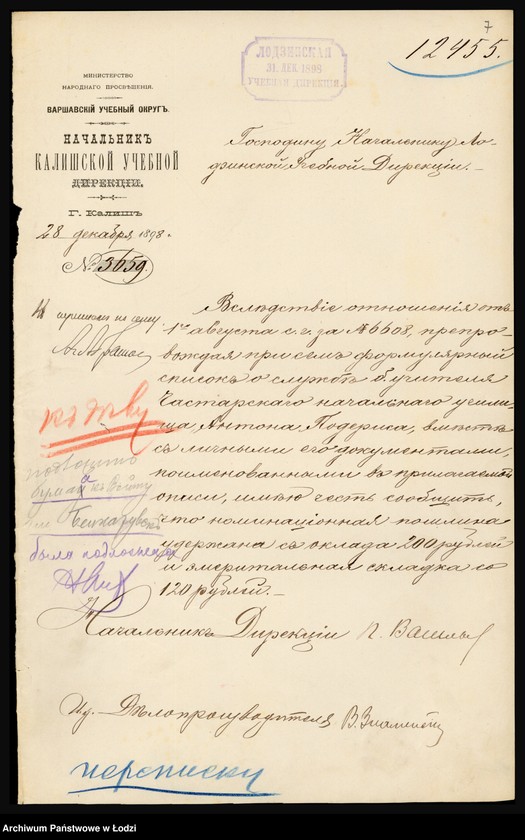 7
12455.
ЛОДЗИНСКАЯ
31. ДЕК. 1898
УЧЕБНАЯ ДИРЕКЦІЯ.
МИНИСТЕРСТВО
НАРОДНАГО ПРОСВѢЩЕНІЯ.
ВАРШАВСКІЙ УЧЕБНЫЙ ОКРУГЪ.
НАЧАЛЬНИКЪ
КАЛИШСКОЙ УЧЕБНОЙ
ДИРЕКЦІИ.
Г. Калишъ
28 декабря 1898 г.
№ 3659.
Господину Начальнику Ло-
дзинской Учебной Дирекціи.
Вслѣдствіе отношенія отъ
1го августа с. г. за № 6608, препро-
вождая при семъ формулярный
списокъ о службѣ б. учителя
Частарскаго начальнаго учили-
ща, Антона Подериса, вмѣстѣ
съ личными его документами,
поименованными въ прилагаемой
описи, имѣю честь сообщить,
что номинаціонная пошлина
удержана съ оклада 200 рублей
и эмеритальная складка со
120 рублей.
Начальникъ Дирекціи
И. д. Дѣлопроизводителя
къ дѣлу
была подложена
переписки
Archiwum Państwowe w Łodzi